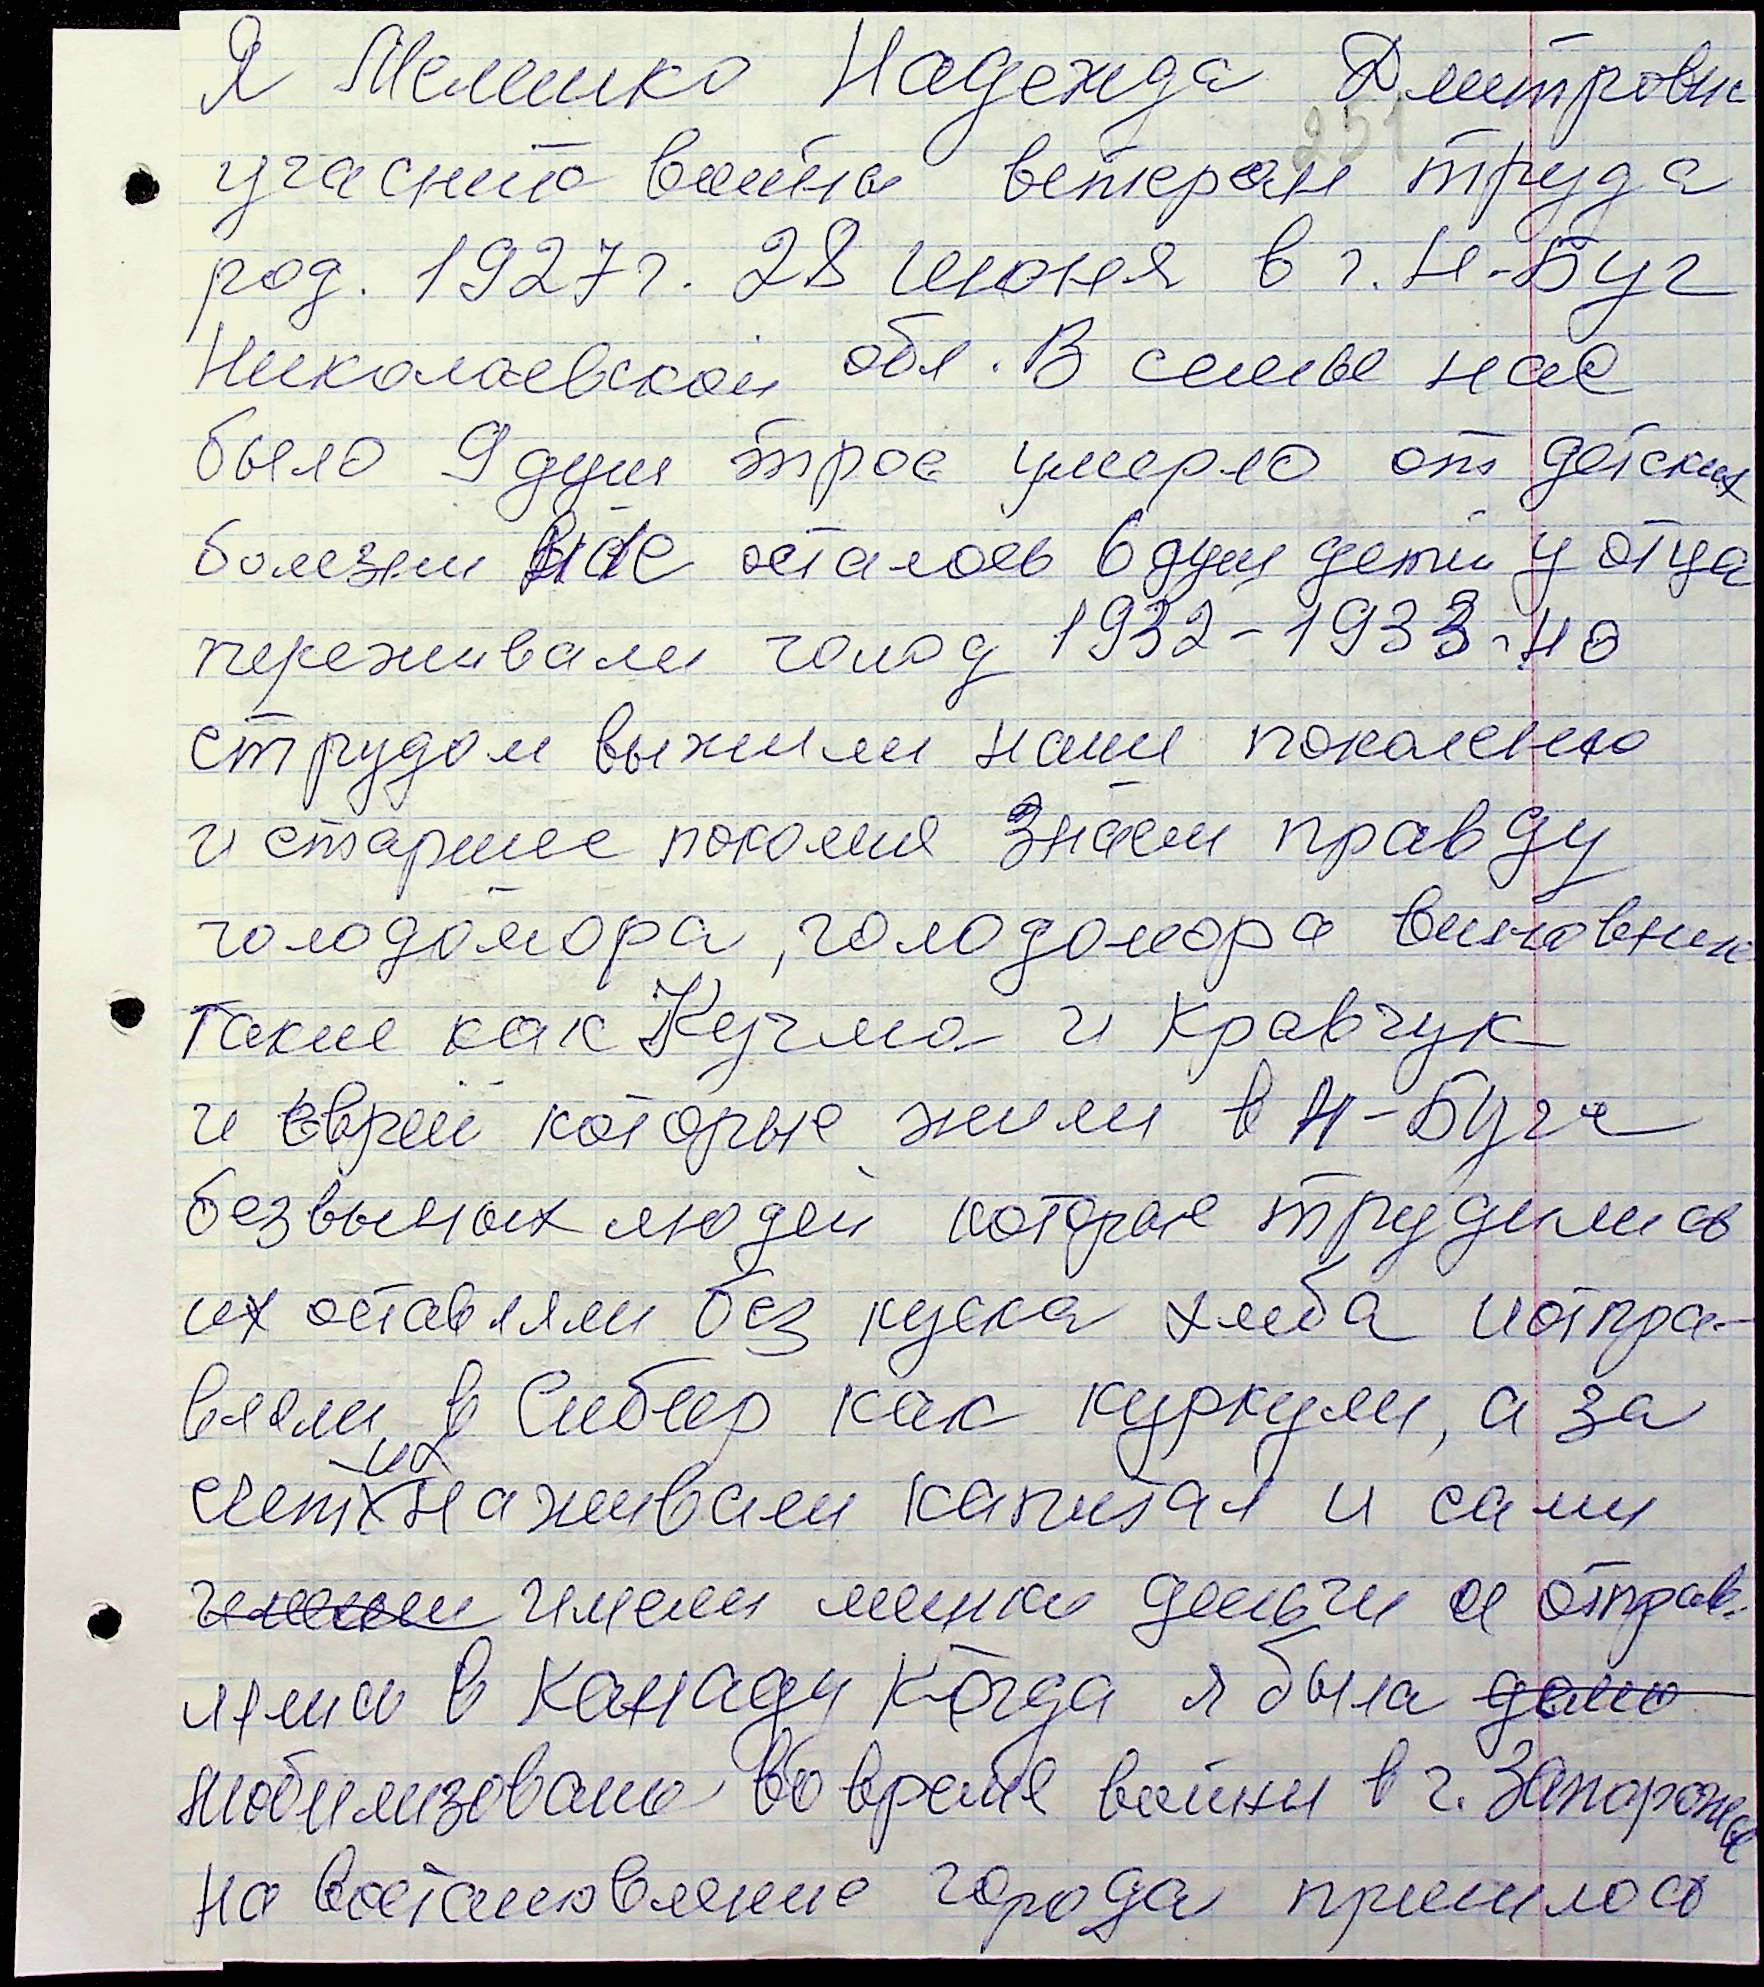 Я Мелешко Надежда Дмитровн
251
учасника войны ветеран труда
род. 1927г. 28 июня в г. Н-Буг
Николаевской обл. В семье нас
было 9 душ трое умерло от детских
болезни нас осталось 6 душ детей у отца
переживали голод 1932-1933. но
струдом выжили наши поколению
и старшее поколия знаем правду
голодомора, голодомора виновники
такие как Кучма и Кравчук
и еврей которые жили в Н-Буге
безвыных людей которые трудились
их оставляли без куска хлеба и отпра-
вляли в Сибир как куркули, а за
счет их наживали капитал и сами
имели мешки деньги и отправ.
лялись в Канаду Когда я была
мобилизована во время войны в г. Запорожье
на востановление города пришлось